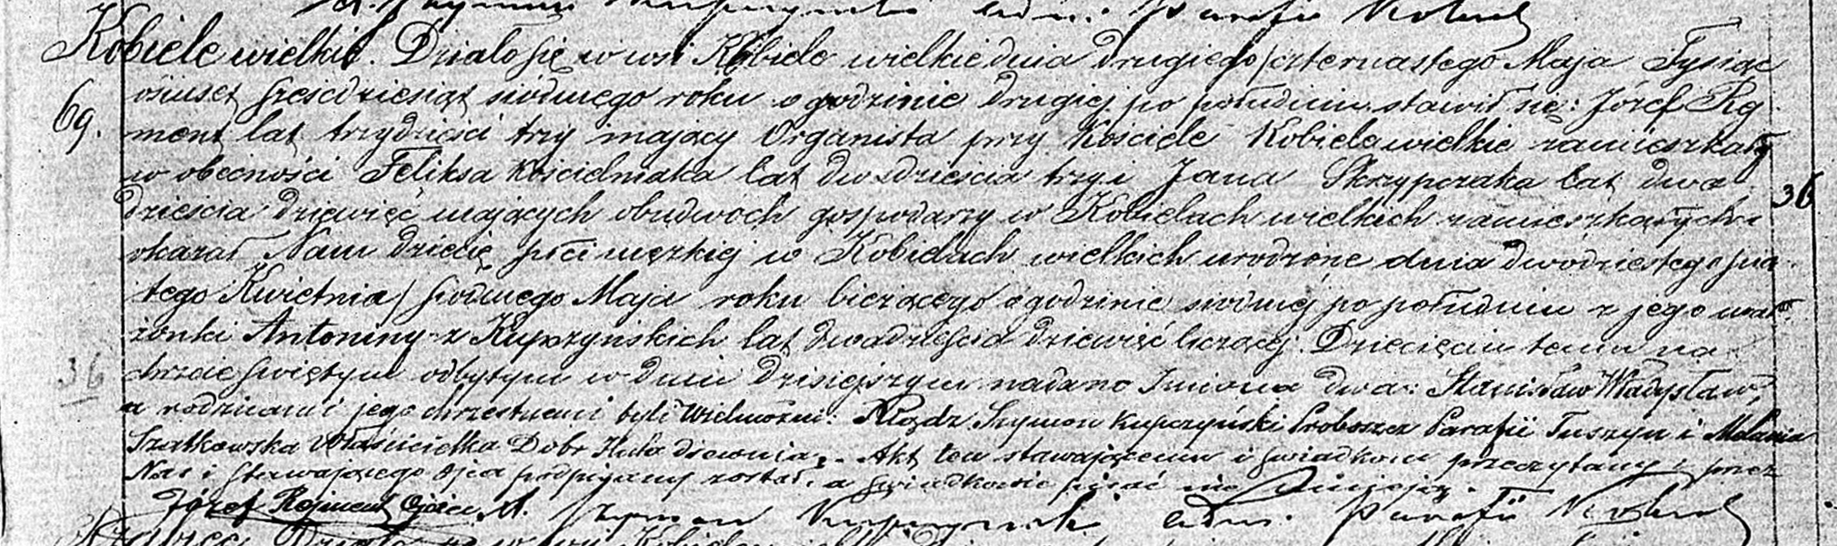 X. Szymon Kupczyński adm. Parafii Kobiel
Kobiele wielkie. Działo się w wsi Kobiele wielkie dnia drugiego/czternastego Maja Tysiąc
69. ośmset sześćdziesiąt siódmego roku o godzinie drugiej po południu stawił się: Józef Rej-
ment lat trzydzieści trzy mający Organista przy Kościele Kobiele wielkie zamieszkały
w obecności Feliksa Kościelniaka lat dwadzieścia trzy i Jana Skrzypczaka lat dwa- 36
dzieścia dziewięć mających obudwoch gospodarzy w Kobielach wielkich zamieszkałych i
okazał Nam dziecię płci męzkiej w Kobielach wielkich urodzone dnia dwudziestego pią-
tego Kwietnia/siódmego Maja roku bieżącego o godzinie siódmej po południu z jego mał-
żonki Antoniny z Kupczyńskich lat dwadzieścia dziewięć liczącej. Dziecięciu temu na
36 chrzcie świętym odbytym w dniu dzisiejszym nadano Imiona dwa: Stanisław Władysław,
a rodzicami jego chrzestnemi byli Wielmożni: Xiądz Szymon Kupczyński Proboszcz Parafii Tuszyn i Melania
Szatkowska Właścicielka Dobr Huta drewnia. Akt ten stawającemu i świadkom przeczytany, przez
Nas i stawającego Ojca podpisany został, a świadkowie pisać nie umieją.
Józef Rejment Ojciec X. Szymon Kupczyński adm. Parafii Kobiel
Działo się w wsi Kobiele